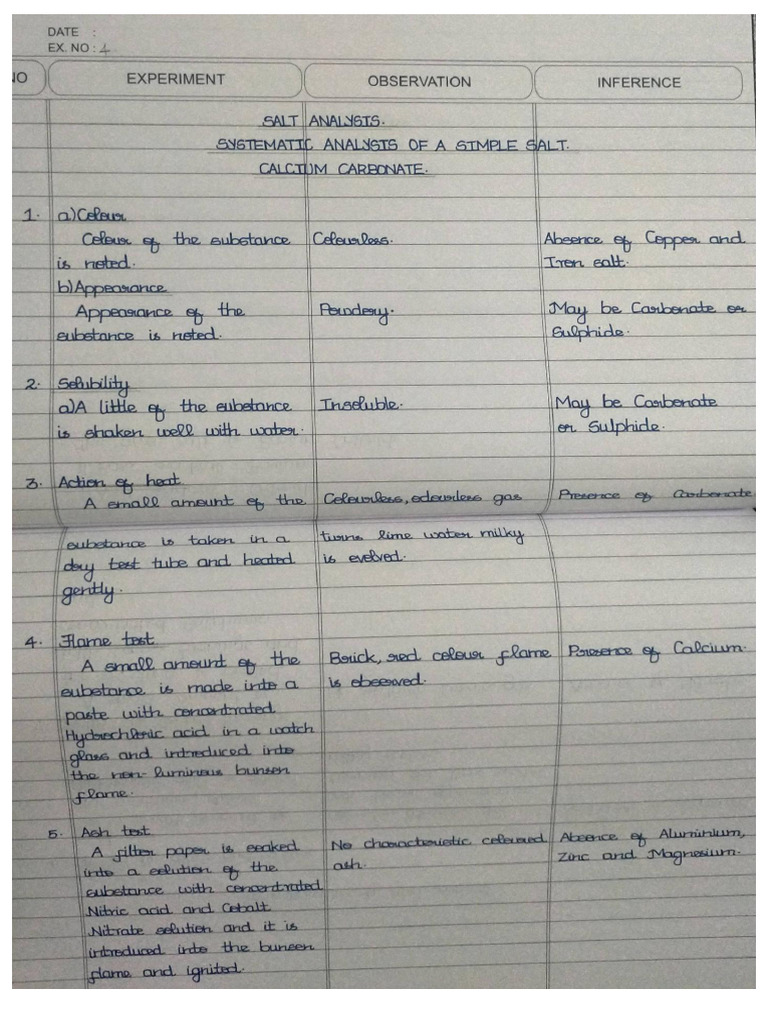 DATE :
EX. NO : 4
NO EXPERIMENT OBSERVATION INFERENCE
SALT ANALYSIS.
SYSTEMATIC ANALYSIS OF A SIMPLE SALT.
CALCIUM CARBONATE.
1. a) Colour
Colour of the substance Colourless. Absence of Copper and
is noted. Iron salt.
b) Appearance
Appearance of the Powdery. May be Carbonate or
substance is noted. Sulphide.
2. Solubility
a) A little of the substance Insoluble. May be Carbonate
is shaken well with water. or Sulphide.
3. Action of heat
A small amount of the Colourless, odourless gas Presence of Carbonate
substance is taken in a turns lime water milky
dry test tube and heated is evolved.
gently.
4. Flame test
A small amount of the Brick, red colour flame Presence of Calcium.
substance is made into a is observed.
paste with concentrated
Hydrochloric acid in a watch
glass and introduced into
the non-luminous bunsen
flame.
5. Ash test
A filter paper is soaked No characteristic coloured Absence of Aluminium,
into a solution of the ash. Zinc and Magnesium.
substance with concentrated
Nitric acid and Cobalt
Nitrate solution and it is
introduced into the bunsen
flame and ignited.